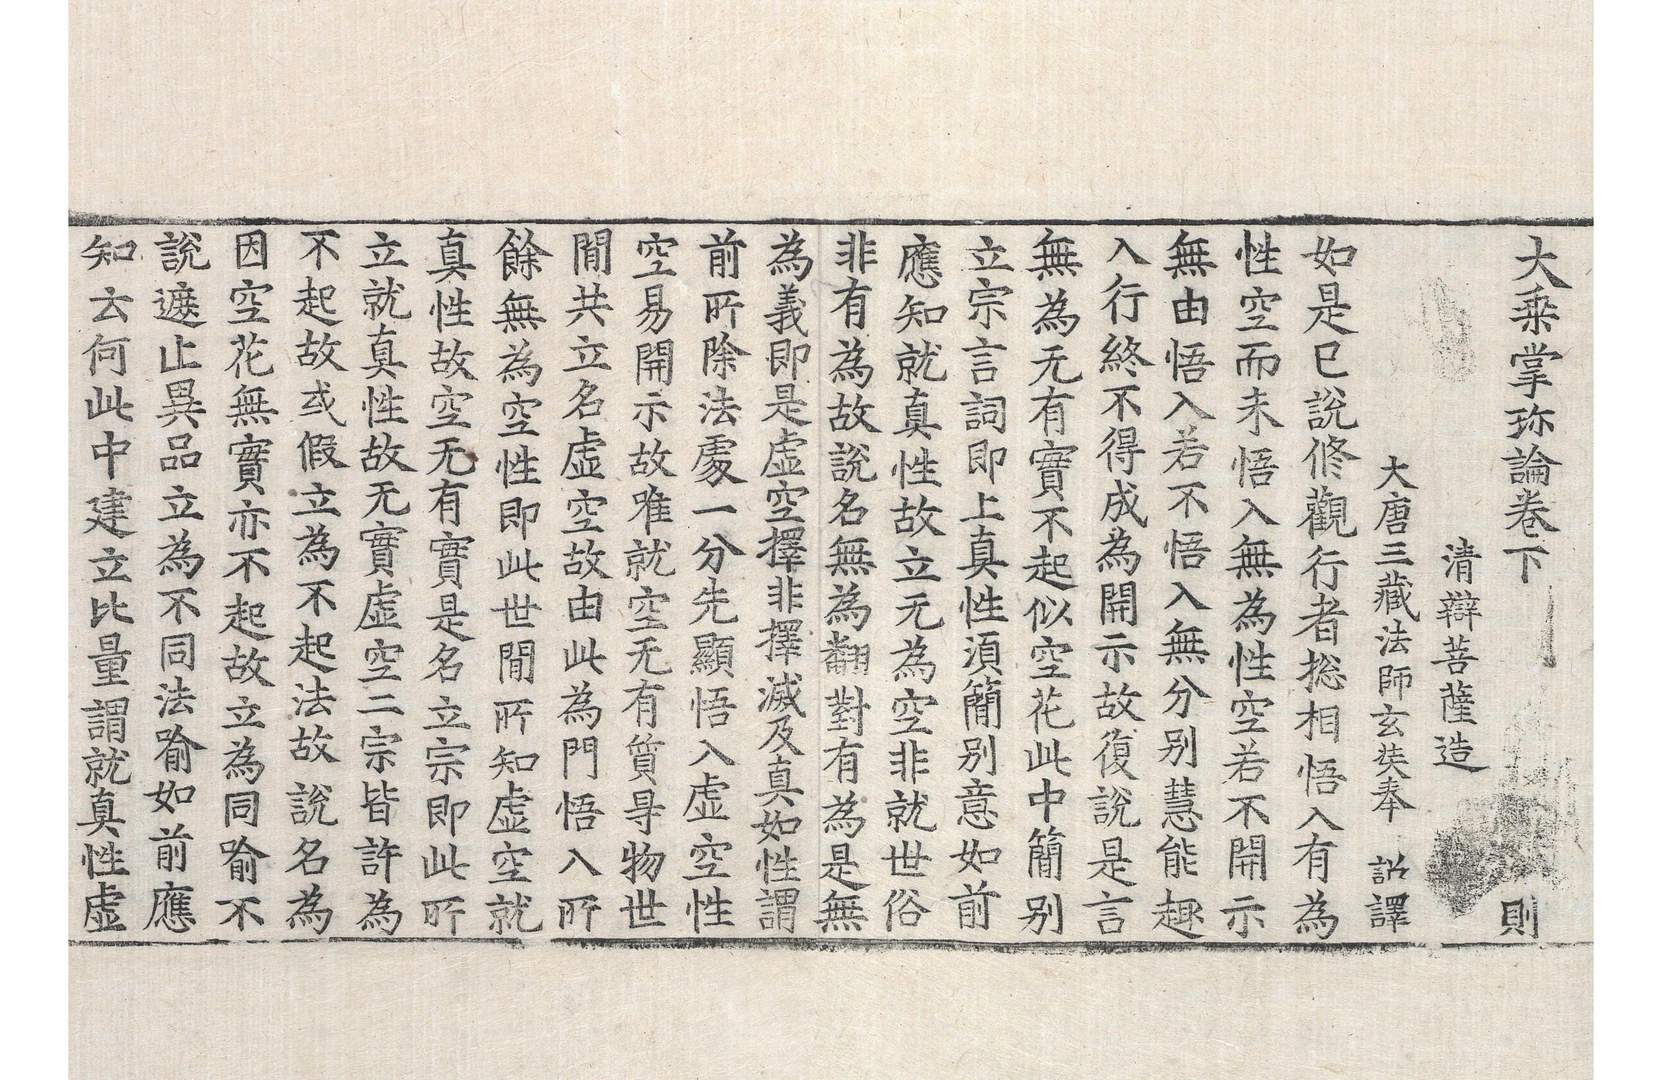 大乘掌珎論卷下 則
清辯菩薩造
大唐三藏法師玄奘奉 詔譯
如是已說修觀行者捴相悟入有為
性空而未悟入無為性空若不開示
無由悟入若不悟入無分别慧能趣
入行終不得成為開示故復說是言
無為无有實不起似空花此中簡别
立宗言詞即上真性湏簡别意如前
應知就真性故立无為空非就世俗
非有為故說名無為翻對有為是無
為義即是虛空擇非擇滅及真如性謂
前所除法處一分先顯悟入虛空性
空易開示故唯就空无有質㝵物世
間共立名虛空故由此為門悟入所
餘無為空性即此世間所知虛空就
真性故空无有實是名立宗即此所
立就真性故无實虛空二宗皆許為
不起故或假立為不起法故說名為
因空花無實亦不起故立為同喻不
說遮止異品立為不同法喻如前應
知云何此中建立比量謂就真性虛